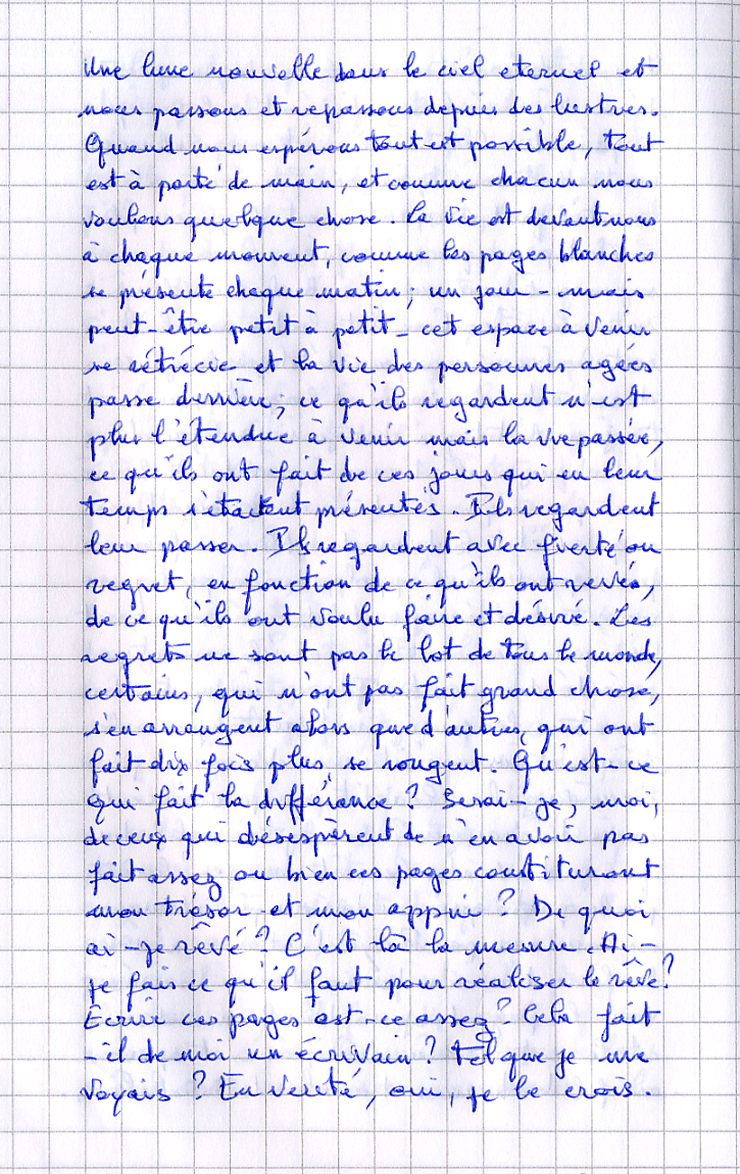 Une lune nouvelle dans le ciel eternel et
nous passons et repassons depuis des lustres.
Quand nous espérons tout est possible, tout
est à porté de main, et comme chacun nous
voulons quelque chose. La vie est devant nous
à chaque moment, comme les pages blanches
se présente chaque matin ; un jour - mais
peut-être petit à petit - cet espace à venir
se rétrécie et la vie des personnes agées
passe derrière ; ce qu'ils regardent n'est
plus l'étendue à venir mais la vie passée,
ce qu'ils ont fait de ces jours qui en leur
temps s'étaient présentés. Ils regardent
leur passer. Ils regardent avec fierté ou
regret, en fonction de ce qu'ils ont rêvés,
de ce qu'ils ont voulu faire et désiré. Les
regrets ne sont pas le lot de tous le monde,
certains, qui n'ont pas fait grand chose,
s'en arrangent alors que d'autres, qui ont
fait dix fois plus, se rongent. Qu'est-ce
qui fait la différance ? Serai-je, moi,
de ceux qui désespèrent de n'en avoir pas
fait assez ou bien ces pages constituront
mon trésor et mon appui ? De quoi
ai-je rêvé ? C'est là la mesure. Ai-
je fais ce qu'il faut pour réaliser le rêve ?
Ecrire ces pages est-ce assez ? Cela fait
-il de moi un écrivain ? Tel que je me
voyais ? En vérité, oui, je le crois.